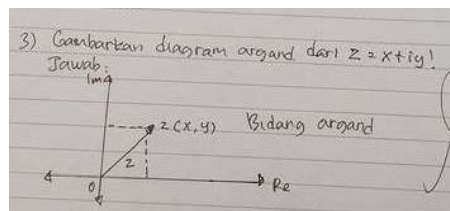 3) Gambarkan diagram argand dari z = x+iy!
Jawab:
Im
z (x, y) Bidang argand
z
0 Re